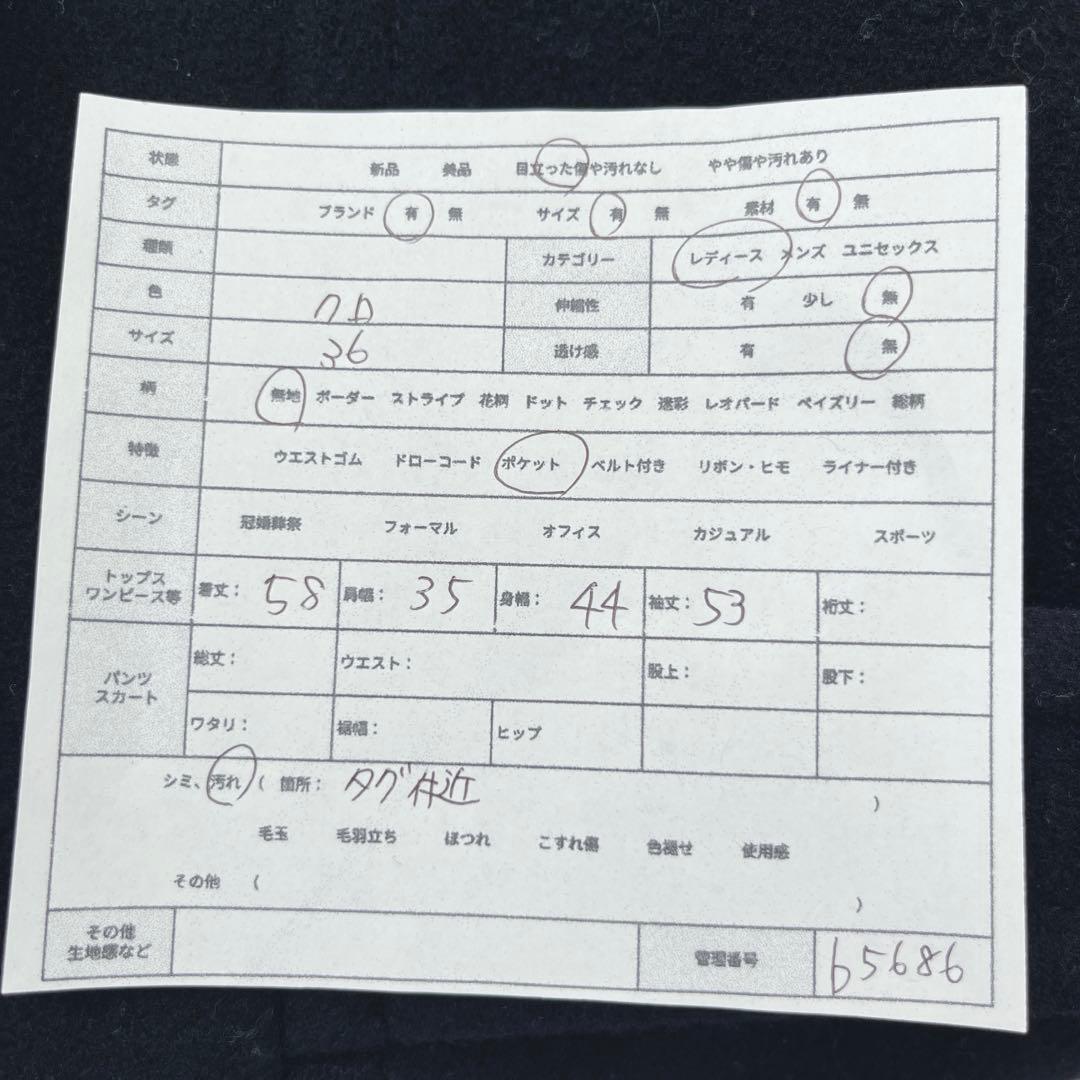 状態 新品 美品 目立った傷や汚れなし やや傷や汚れあり
タグ ブランド 有 無 サイズ 有 無 素材 有 無
種類 カテゴリー レディース メンズ ユニセックス
色 クロ 伸縮性 有 少し 無
サイズ 36 透け感 有 無
柄 無地 ボーダー ストライプ 花柄 ドット チェック 迷彩 レオパード ペイズリー 総柄
特徴 ウエストゴム ドローコード ポケット ベルト付き リボン・ヒモ ライナー付き
シーン 冠婚葬祭 フォーマル オフィス カジュアル スポーツ
トップス
ワンピース等 着丈: 58 肩幅: 35 身幅: 44 袖丈: 53 裄丈:
パンツ
スカート 総丈: ウエスト: 股上: 股下:
ワタリ: 裾幅: ヒップ
シミ、汚れ ( 箇所: タグ付近 )
毛玉 毛羽立ち ほつれ こすれ傷 色褪せ 使用感
その他 ( )
その他
生地感など 管理番号 b5686